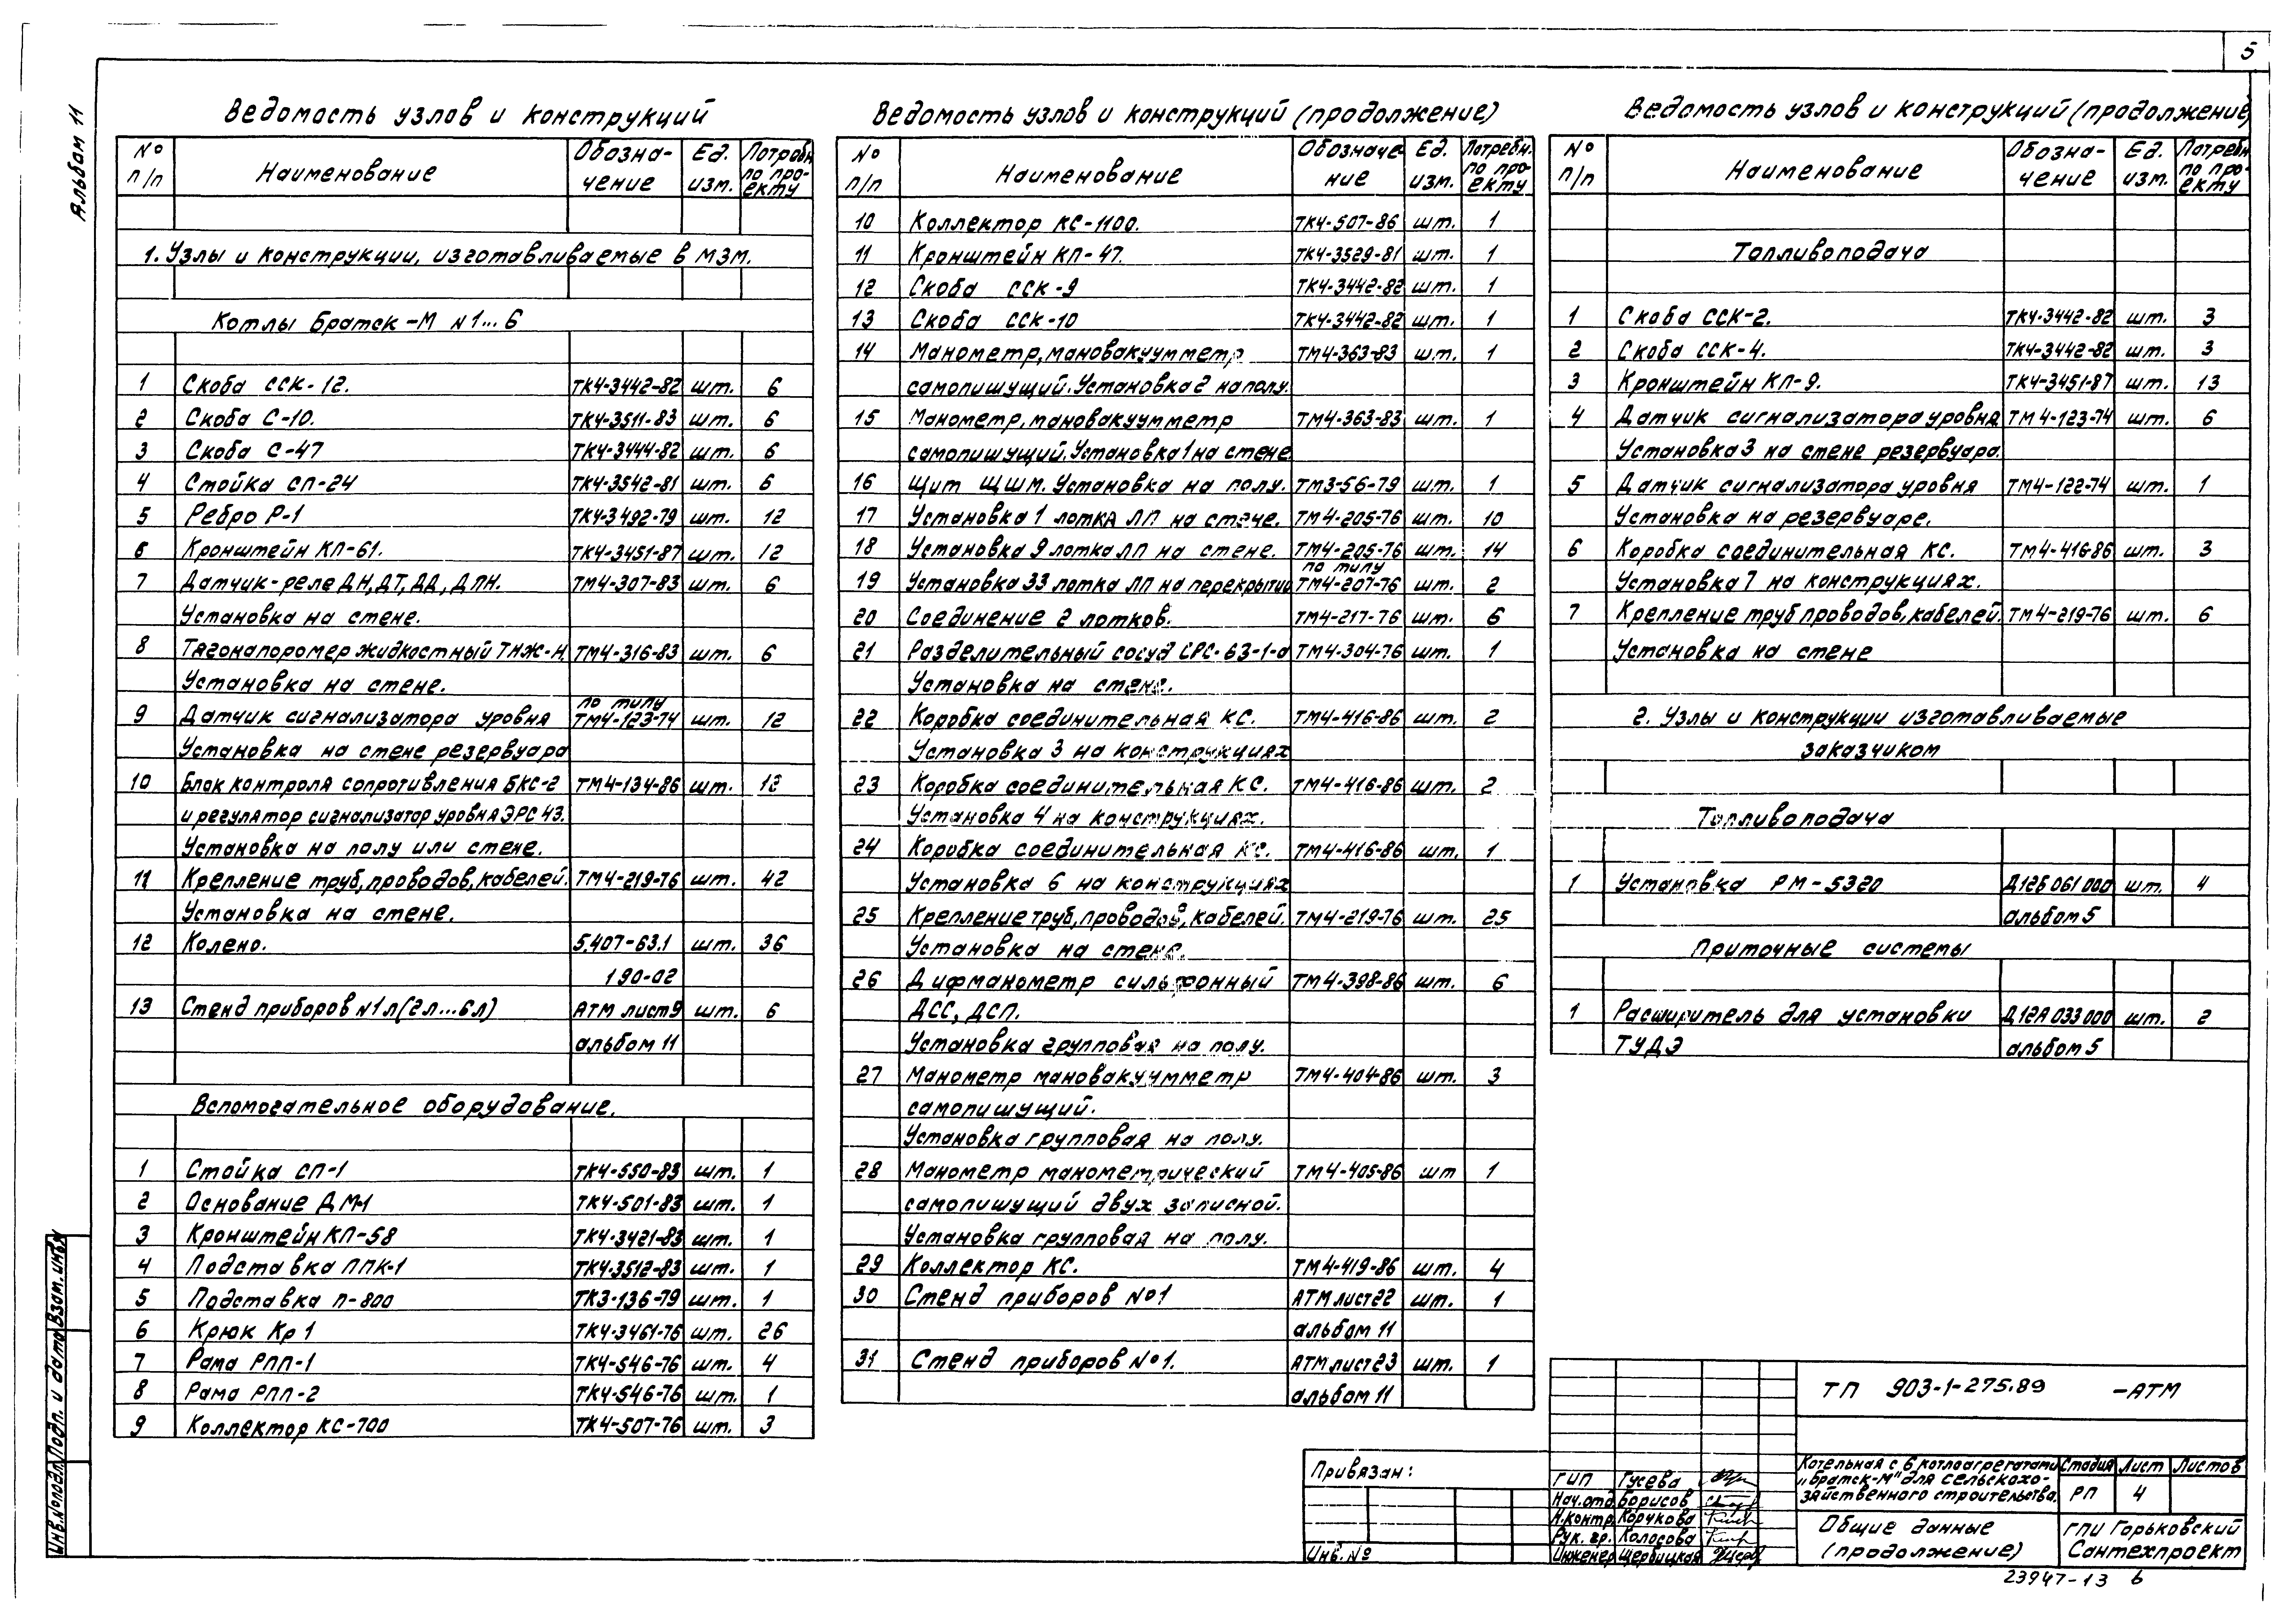 5
Альбом 11
Ведомость узлов и конструкций
№ п/п Наименование Обозна-чение Ед. изм. Потребн. по про-екту
1. Узлы и конструкции, изготавливаемые в МЗМ.
Котлы Братск-М N1...6
1 Скоба ССК-12. ТК4-3442-82 шт. 6
2 Скоба С-10. ТК4-3511-83 шт. 6
3 Скоба С-47 ТК4-3444-82 шт. 6
4 Стойка СП-24 ТК4-3542-81 шт. 6
5 Ребро Р-1 ТК4-3492-79 шт. 12
6 Кронштейн КП-61. ТК4-3451-87 шт. 12
7 Датчик-реле ДН, ДТ, ДД, ДПН. ТМ4-307-83 шт. 6
Установка на стене.
8 Тягонапоромер жидкостный ТНЖ-Н. ТМ4-316-83 шт. 6
Установка на стене.
по типу
9 Датчик сигнализатора уровня ТМ4-123-74 шт. 12
Установка на стене резервуара
10 Блок контроля сопротивления БКС-2 ТМ4-134-86 шт. 12
и регулятор сигнализатор уровня ЭРС 43.
Установка на полу или стене.
11 Крепление труб, проводов, кабелей. ТМ4-219-76 шт. 42
Установка на стене.
12 Колено. 5.407-63.1 шт. 36
190-02
13 Стенд приборов N1л (2л...6л) АТМ лист 9 шт. 6
альбом 11
Вспомогательное оборудование.
1 Стойка СП-1 ТК4-550-83 шт. 1
2 Основание ДМ-1 ТК4-501-83 шт. 1
3 Кронштейн КП-58 ТК4-3421-83 шт. 1
4 Подставка ППК-1 ТК4-3512-83 шт. 1
5 Подставка П-800 ТК3-136-79 шт. 1
6 Крюк Кр 1 ТК4-3461-76 шт. 26
7 Рама РПП-1 ТК4-546-76 шт. 4
8 Рама РПП-2 ТК4-546-76 шт. 1
9 Коллектор КС-700 ТК4-507-76 шт. 3
Ведомость узлов и конструкций (продолжение)
№ п/п Наименование Обозначе-ние Ед. изм. Потребн. по про-екту
10 Коллектор КС-1100. ТК4-507-86 шт. 1
11 Кронштейн КП-47. ТК4-3529-81 шт. 1
12 Скоба ССК-9 ТК4-3442-82 шт. 1
13 Скоба ССК-10 ТК4-3442-82 шт. 1
14 Манометр, мановакуумметр ТМ4-363-83 шт. 1
самопишущий. Установка 2 на полу.
15 Манометр, мановакуумметр ТМ4-363-83 шт. 1
самопишущий. Установка 1 на стене
16 Щит ЩШМ. Установка на полу. ТМ3-56-79 шт. 1
17 Установка 1 лотка ЛП на стене. ТМ4-205-76 шт. 10
18 Установка 9 лотка ЛП на стене. ТМ4-205-76 шт. 14
по типу
19 Установка 33 лотка ЛП на перекрытии ТМ4-207-76 шт. 2
20 Соединение 2 лотков. ТМ4-217-76 шт. 6
21 Разделительный сосуд СРС-63-1-а ТМ4-304-76 шт. 1
Установка на стене.
22 Коробка соединительная КС. ТМ4-416-86 шт. 2
Установка 3 на конструкциях
23 Коробка соединительная КС. ТМ4-416-86 шт. 2
Установка 4 на конструкциях.
24 Коробка соединительная КС. ТМ4-416-86 шт. 1
Установка 6 на конструкциях
25 Крепление труб, проводов, кабелей. ТМ4-219-76 шт. 25
Установка на стене.
26 Дифманометр сильфонный ТМ4-398-86 шт. 6
ДСС, ДСП.
Установка групповая на полу.
27 Манометр мановакуумметр ТМ4-404-86 шт. 3
самопишущий.
Установка групповая на полу.
28 Манометр манометрический ТМ4-405-86 шт 1
самопишущий двух записной.
Установка групповая на полу.
29 Коллектор КС. ТМ4-419-86 шт. 4
30 Стенд приборов №1 АТМ лист 22 шт. 1
альбом 11
31 Стенд приборов №1. АТМ лист 23 шт. 1
альбом 11
Ведомость узлов и конструкций (продолжение)
№ п/п Наименование Обозна-чение Ед. изм. Потребн. по про-екту
Топливоподача
1 Скоба ССК-2. ТК4-3442-82 шт. 3
2 Скоба ССК-4. ТК4-3442-82 шт. 3
3 Кронштейн КП-9. ТК4-3451-87 шт. 13
4 Датчик сигнализатора уровня ТМ4-123-74 шт. 6
Установка 3 на стене резервуара.
5 Датчик сигнализатора уровня ТМ4-122-74 шт. 1
Установка на резервуаре.
6 Коробка соединительная КС. ТМ4-416-86 шт. 3
Установка 7 на конструкциях.
7 Крепление труб проводов, кабелей. ТМ4-219-76 шт. 6
Установка на стене
2. Узлы и конструкции изготавливаемые
заказчиком
Топливоподача
1 Установка РМ-5320 Д12Б 061 000 шт. 4
альбом 5
Приточные системы
1 Расширитель для установки Д12А 033 000 шт. 2
ТУДЭ альбом 5
Инв.№подл. Подп. и дата Взам.инв.№
Привязан:
Инв. №
ГИП Гусева
Нач.отд. Борисов
Н.контр. Корчкова
Рук. гр. Колосова
Инженер Щербицкая
ТП 903-1-275.89 -АТМ
Котельная с 6 котлоагрегатами
„Братск-М" для сельскохо-
зяйственного строительства.
Стадия Лист Листов
РП 4
Общие данные
(продолжение)
ГПИ Горьковский
Сантехпроект
23947-13 6